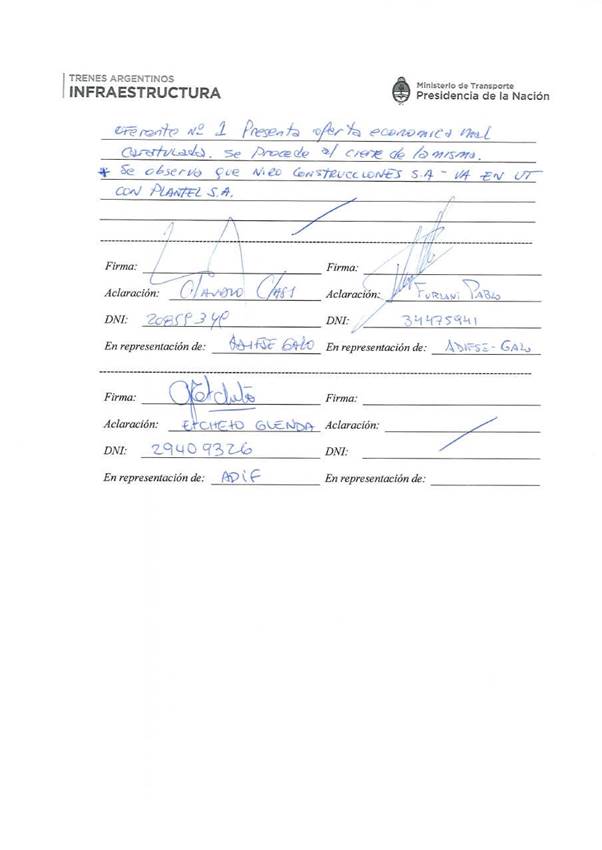 TRENES ARGENTINOS
INFRAESTRUCTURA
Ministerio de Transporte
Presidencia de la Nación
oferente Nº 1 Presenta oferta economica mal
caratulada. Se Procede al cierre de la misma.
* Se observa que NIRO CONSTRUCCIONES S.A - VA EN UT
CON PLANTEL S.A.
Firma: Firma:
Aclaración: Claudio Aclaración: FURLANI PABLO
DNI: DNI: 34475941
En representación de: ADIFSE GALO En representación de: ADIFSE-GALO
Firma: Firma:
Aclaración: ETCHETO GLENDA Aclaración:
DNI: 29409326 DNI:
En representación de: ADIF En representación de: